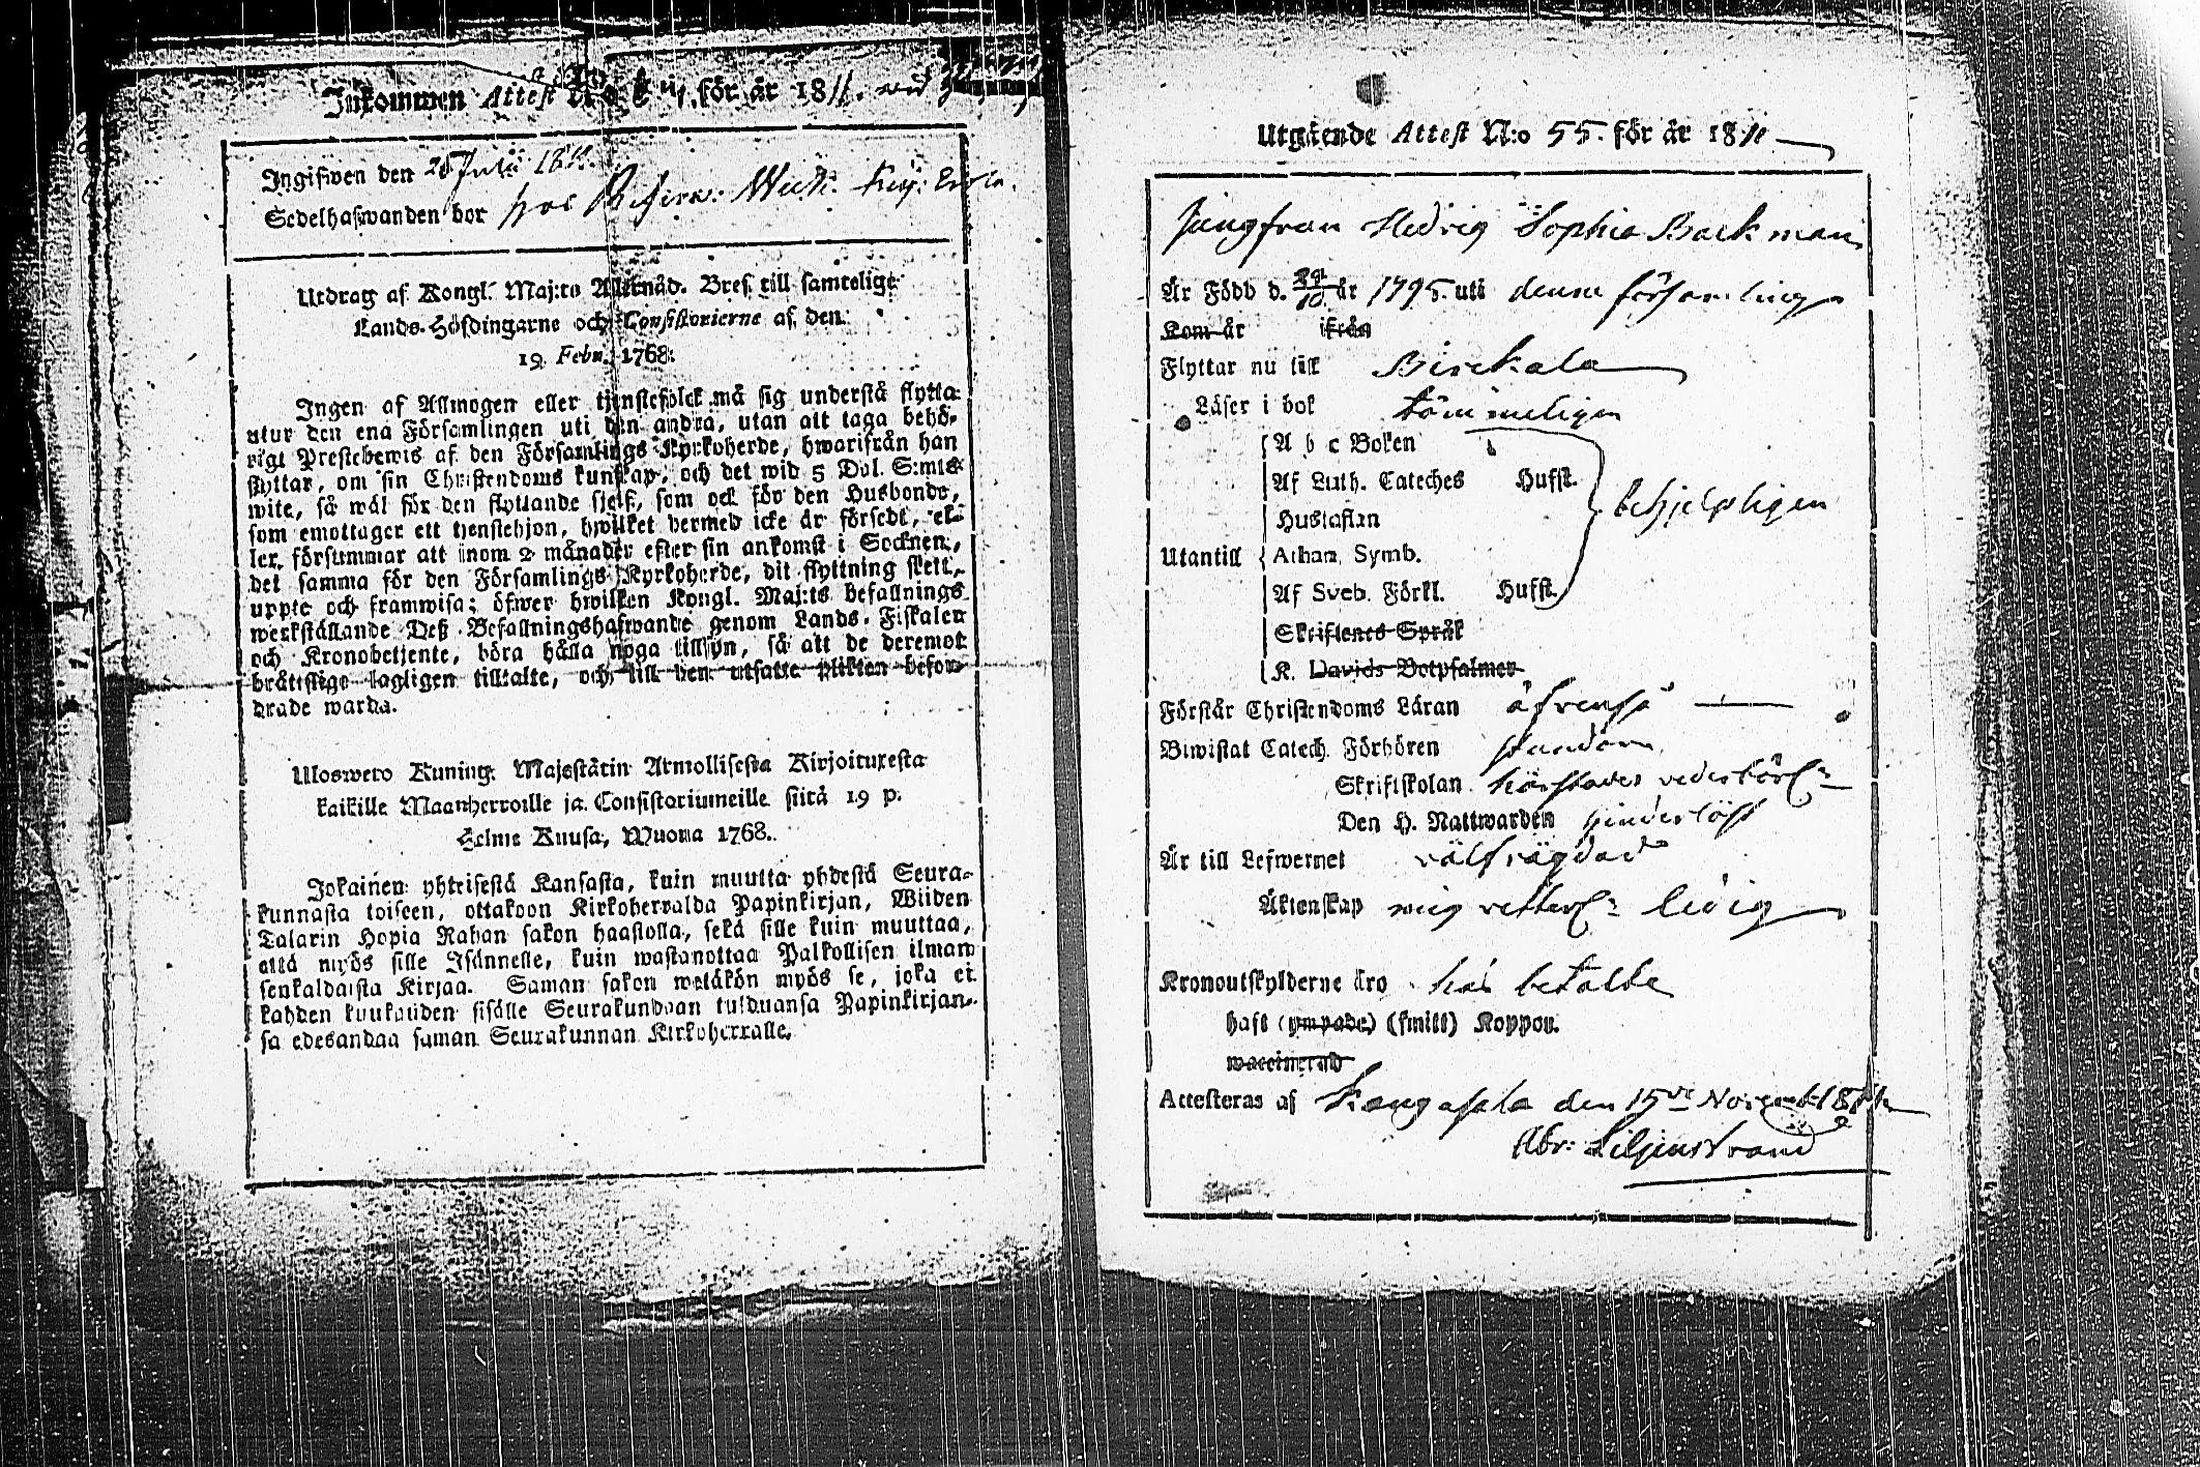 Inkommen Attest N:o för år 1811. wid
Ingifwen den 20 Julii 1811.
Sedelhafwanden bor hos
Utdrag af Kongl. Maj:ts Allernåd. Bref till samtelige
Lands-Höfdingarne och Consistorierne af den
19 Febr. 1768.
Ingen af Allmogen eller tjenstefolck må sig understå flytta
utur den ena Församlingen uti den andra, utan att taga behö-
rigt Prestebewis af den Församlings Kyrkoherde, hwarifrån han
flyttar, om sin Christendoms kunskap, och det wid 5 Dal. S:mts
wite, så wäl för den flyttande sjelf, som ock för den Husbonde,
som emottager ett tjenstehjon, hwilket dermed icke är försedt, el-
ler försummar att inom 2 månader efter sin ankomst i Socknen,
det samma för den Församlings Kyrkoherde, dit flyttning skett,
uppte och framwisa; öfwer hwilken Kongl. Maj:ts befallnings
werkställande Deß Befallningshafwande genom Lands-Fiskaler
och Kronobetjente, böra hålla noga tillsyn, så att de deremot
bråttslige lagligen tilltalte, och till den utsatte plikten befor-
drade warda.
Ulosweto Kuning. Majestätin Armollisesta Kirjoituxesta
kaikille Maanherroille ja Consistoriumeille siitä 19 p.
Helme Kuusa, Wuonna 1768.
Jokainen yhteisestä Kansasta, kuin muutta yhdestä Seura-
kunnasta toiseen, ottakoon Kirkoherralda Papinkirjan, Wiiden
Talarin Hopia Rahan sakon haastolla, sekä sille kuin muuttaa,
että myös sille Isännelle, kuin wastanottaa Palkollisen ilman
senkaldaista Kirjaa. Saman sakon wetäkön myös se, joka ei
kahden kuukauden sisälle Seurakundaan tulduansa Papinkirjan-
sa edesandaa saman Seurakunnan Kirkoherralle.
Utgående Attest N:o 55. för år 1811
Jungfrun Hedvig Sophia Backman
Är Född d. 29/10 år 1795. uti denna församling
Kom år ifrån
Flyttar nu till Birckala
Läser i bok tämmeligen
A b c Boken
Af Luth. Cateches Hufst.
Hustaflan behjelpligen
Utantill Athan. Symb.
Af Sveb. Förkl. Hufst.
Skriftenes Språk
K. Davids Botpsalmer
Förstår Christendoms Läran äfvenså
Biwistat Catech. Förhören
Skriftskolan
Den H. Nattwarden hinderlöst
Är till Lefwernet välfrägdad
Äktenskap mig vetterl: ledig
Kronoutskylderne äro här betalde
haft (ympade) (smitt) Koppor.
waccinerad
Attesteras af Kangasala den 15de Novemb. 1811
Abr: Liljenstrand